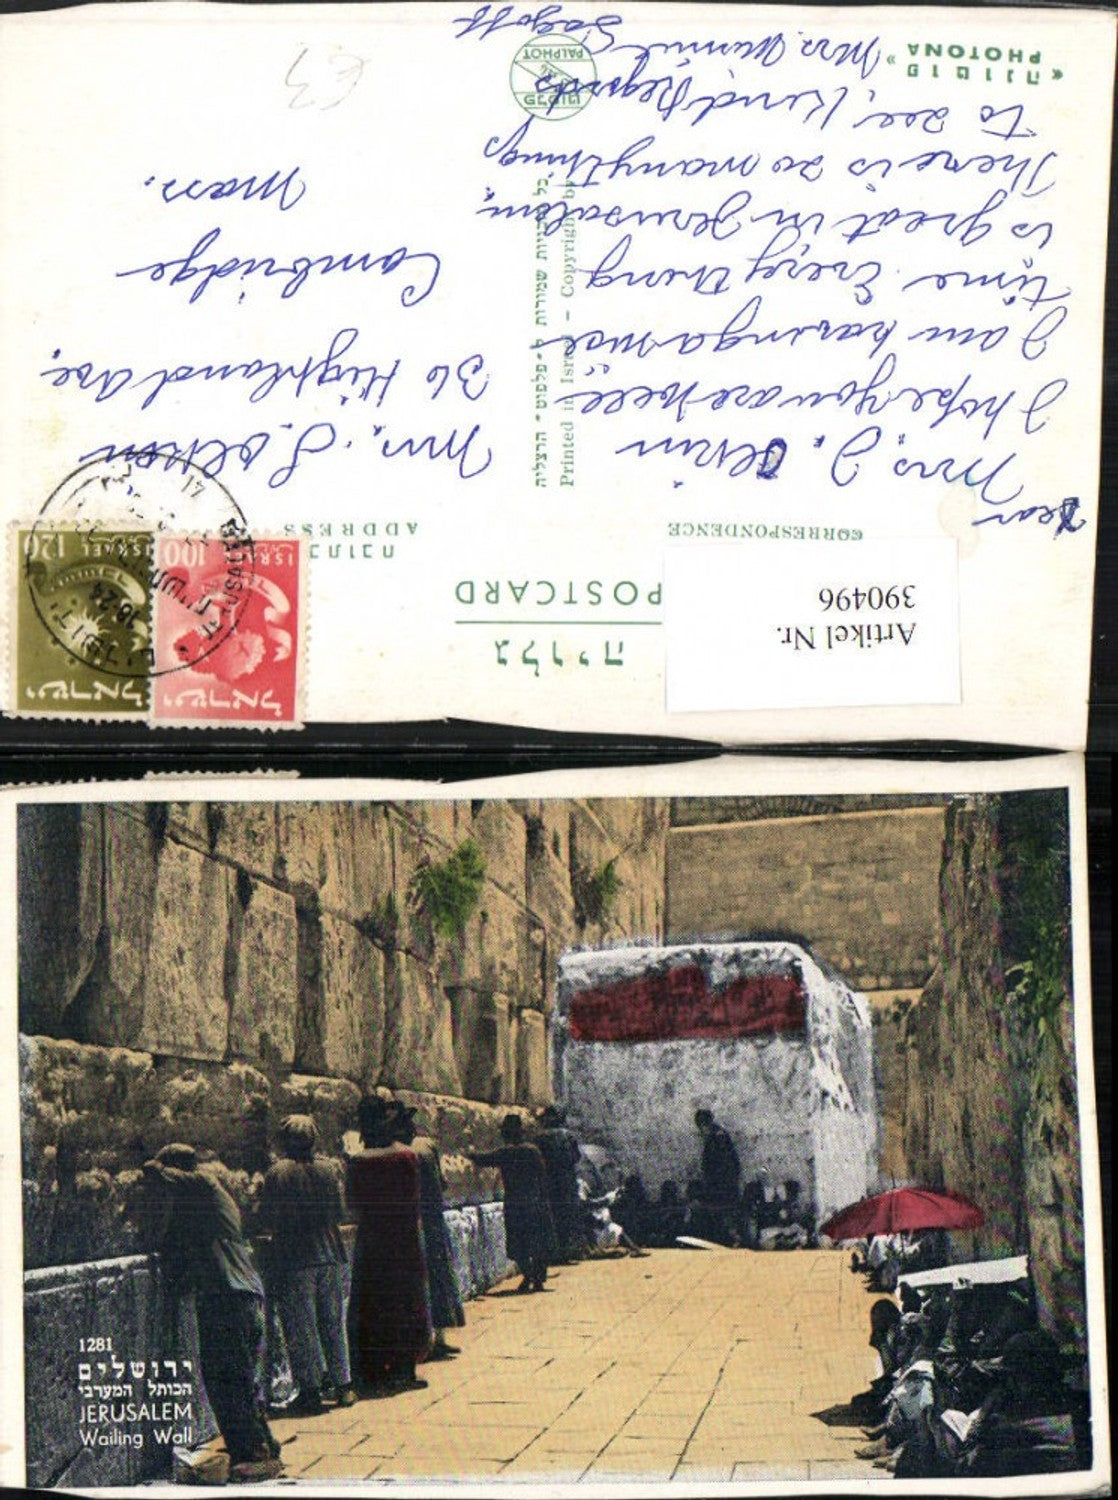 « פוטונה »
PHOTONA
גלויה
POSTCARD
CORRESPONDENCE
כתובת
ADDRESS
Artikel Nr.
390496
Dear
Mrs J. Olkin
I hope you are well
I am having a nice
time. Everything
is great in Jerusalem.
There is so many things
to see, Kind Regards
Mrs.
כל הזכויות שמורות ל-פלפוט - הרצליה
Printed in Israel – Copyright by
פלפוט
PALPHOT
ישראל
100
ISRAEL
ישראל
120
ISRAEL
JERUSALEM
ירושלים
18-24
Mrs.
36 Highland Ave,
Cambridge
Mass.
€3
1281
ירושלים
הכותל המערבי
JERUSALEM
Wailing Wall